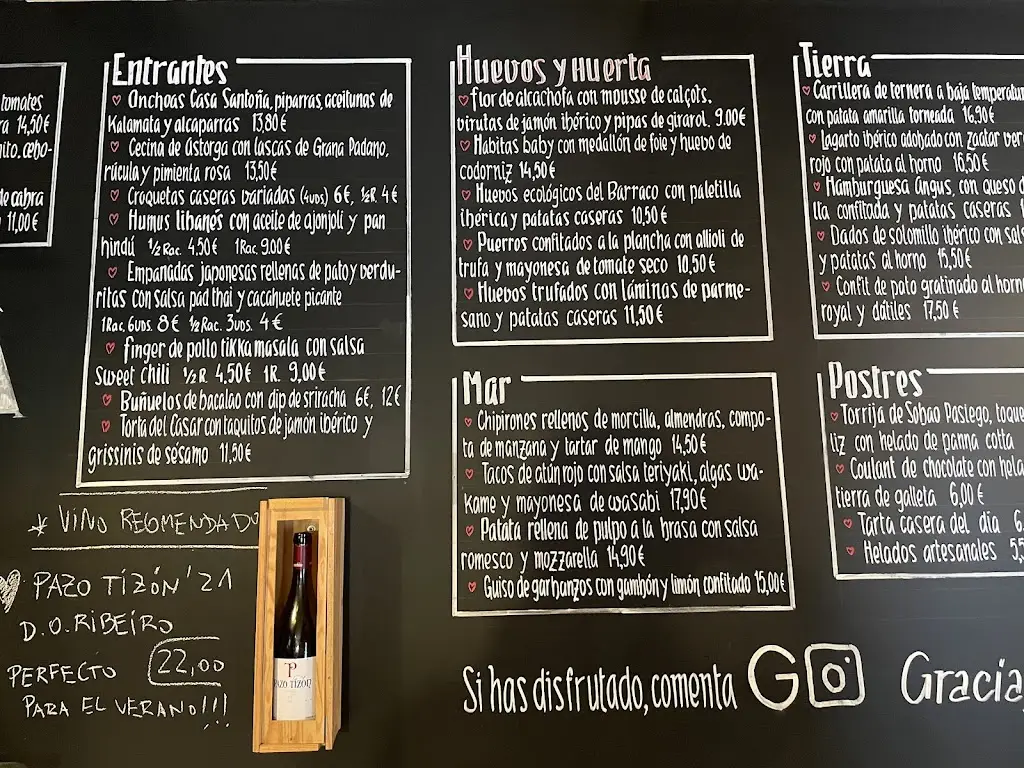 tomates
14,50€
de cabra
11,00€
Entrantes
Anchoas Casa Santoña, piparras, aceitunas de
Kalamata y alcaparras 13,80€
Cecina de Astorga con lascas de Grana Padano,
rúcula y pimienta rosa 13,50€
Croquetas caseras variadas (4uds) 6€, ½R. 4€
Humus libanés con aceite de ajonjolí y pan
hindú ½ Rac. 4,50€ 1 Rac. 9,00€
Empanadas japonesas rellenas de pato y verdu-
ritas con salsa pad thai y cacahuete picante
1 Rac. 6uds. 8€ ½ Rac. 3uds. 4€
finger de pollo tikka masala con salsa
Sweet chili ½ R. 4,50€ 1 R. 9,00€
Buñuelos de bacalao con dip de sriracha 6€, 12€
Torta del Casar con taquitos de jamón ibérico y
grissinis de sésamo 11,50€
* VINO RECOMENDADO
PAZO TIZÓN '21
D.O. RIBEIRO
PERFECTO 22,00
PARA EL VERANO!!!
TP
PAZO TIZÓN
Huevos y Huerta
flor de alcachofa con mousse de calçots,
virutas de jamón ibérico y pipas de girasol. 9.00€
Habitas baby con medallón de foie y huevo de
codorniz 14,50€
Huevos ecológicos del Barraco con paletilla
ibérica y patatas caseras 10,50€
Puerros confitados a la plancha con allioli de
trufa y mayonesa de tomate seco 10,50€
Huevos trufados con láminas de parme-
sano y patatas caseras 11,50€
Mar
Chipirones rellenos de morcilla, almendras, compo-
ta de manzana y tartar de mango 14,50€
Tacos de atún rojo con salsa teriyaki, algas wa-
kame y mayonesa de wasabi 17,90€
Patata rellena de pulpo a la brasa con salsa
romesco y mozzarella 14,90€
Guiso de garbanzos con gambón y limón confitado 15,00€
Tierra
Carrillera de ternera a baja temperatur
con patata amarilla torneada 16,90€
lagarto ibérico adobado con zaatar ver
rojo con patata al horno 16,50€
Hamburguesa Angus, con queso d
lla confitada y patatas caseras
Dados de solomillo ibérico con sals
y patatas al horno 15,50€
Confit de pato gratinado al horno
royal y dátiles 17,50€
Postres
Torrija de Sobao Pasiego, toque
liz con helado de panna cotta
Coulant de chocolate con hela
tierra de galleta 6,00€
Tarta casera del día 6,
Helados artesanales 5,5
Si has disfrutado, comenta G Gracia